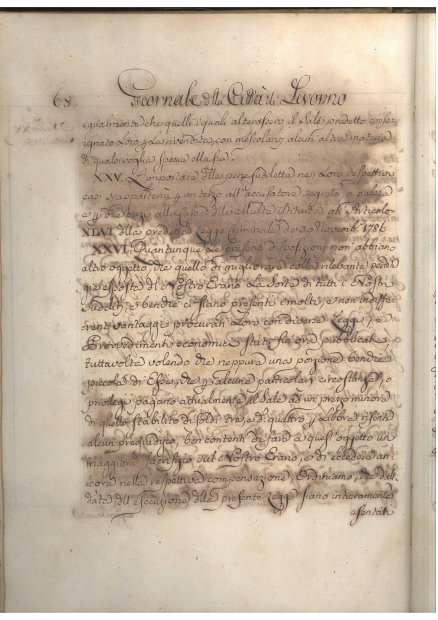 68 Giornale della Città di Livorno
egualmente che quelli i quali alterassero il Sale predetto conse-
gnato Loro per la rivendita, con mescolarvi alcun altra materia
di qualsivoglia specie ella sia.
XXV. L'importare delle pene suddette nei Loro respettivi
casi s'apparterrà per un terzo all'accusatore segreto, o palese
e per due terzi alla Cassa delle Multe istituita all'Articolo
XLVI della predetta Legge Criminale de 30 Novembre 1786
XXXVI. Quantunque Le presenti disposizioni non abbiano
altro oggetto, che quello di migliorare colle rilevante perdite
esposto del Nostro Erario La sorte di tutti i Nostri
Sudditi, e benche ci siano presenti i molti, e non indiffe-
renti vantaggi procurati Loro con diverse Leggi, e
Provvedimenti economici stati fin ora pubblicati,
tuttavolta volendo che neppure una porzione benche
piccola di Essi, che per alcune particolari circostanze, o
privilegi pagano attualmente il Sale ad un prezzo minore
di quello stabilito di soldi tre, e di quattro per Libbra risenta
alcun pregiudizio, ben contenti di fare a quest'oggetto un
maggiore sacrifizio sul Nostro Erario, e di eccedere an-
cora nella respettiva compensazione, Ordiniamo, che dal
dì dell'esecuzione della presente Legge siano intieramente
esentati